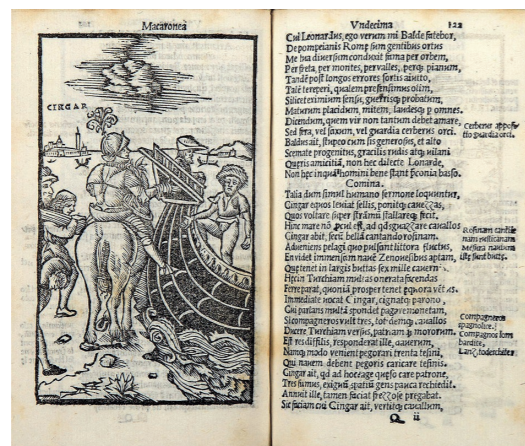 Macaronea
CINGAR
Vndecima 122
Cui Leonardus, ego verum mi Balde fatebor,
De pompeianis Romę sum gentibus ortus
Me hã diversum conduxit fama per orbem,
Per freta, per montes, per valles, perq; pianum,
Tandẽ post longos errores sortis aiuto,
Talẽ te reperi, qualem presensimus olim,
Silicet eximium sensu, guerrisq; probatum,
Maturum placidum, mitem, laudesq; p omnes.
Dicendum, quem vir non tantum debet amare,
Sed fera, vel saxum, vel guardia cerberus orci.
Baldus ait, stupeo cum sis generosus, et alto
Stemate progenitus, gracilis rudis atq; vilani
Queris amicitiã, non hec dilecte Lonarde,
Nec hec inquã homini bene stant ꝓconia basso.
Comina.
Talia dum simul humano sermone loquuntur,
Cingar equos leviat sellis, ponitq; cavezzas,
Quos voltare super stramũ stallareq; fecit.
Hinc mare nõ ꝓcul est, ad qd guazzare cavallos
Cingar abit, secũ bellã cantando rosinam.
Adveniens pelagi quo pulsant littora fluctus,
En videt immensam navẽ Zenovesibus aptam,
Que tenet in largis buttas sex mille cavernis.
Hęc in Turchiam multas onerata facendas
Ferre parat, quoniã prosper tenet equora vẽtus.
Immediate vocat Cingar, cignatq; parono,
Cui parlans multã spondet pagare monetam,
Si compagneros vult tres, totidemq; cavallos
Ducere Turchiam versus, patriam q; mororum.
Est res difficilis, responderat ille, daverum,
Namq; modo venient pegorari trenta tesini,
Qui navem debent pegoris caricare tesinis.
Cingar ait, qd ad hoc fage queso care patrone,
Tres sumus, exiguũ spatiũ gens pauca rechiedit.
Annuit ille, tamen faciat frezzose pregabat.
Sic faciam cui Cingar ait, vertitq; cavallum,
Q ii
Cerberus
tio guardia orci.
Rosinam
nam rusticanam
Messera navium
est sunt butte.
Compagneros
spagnolice.
Compagnos lom
bardice,